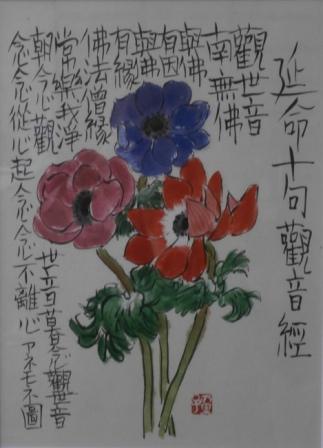 延命十句觀音經
觀世音
南無佛
與佛
有因
與佛
有縁
佛法僧縁
常樂我淨
朝念觀
世音暮念觀世音
念念從心起念念不離心
アネモネ圖